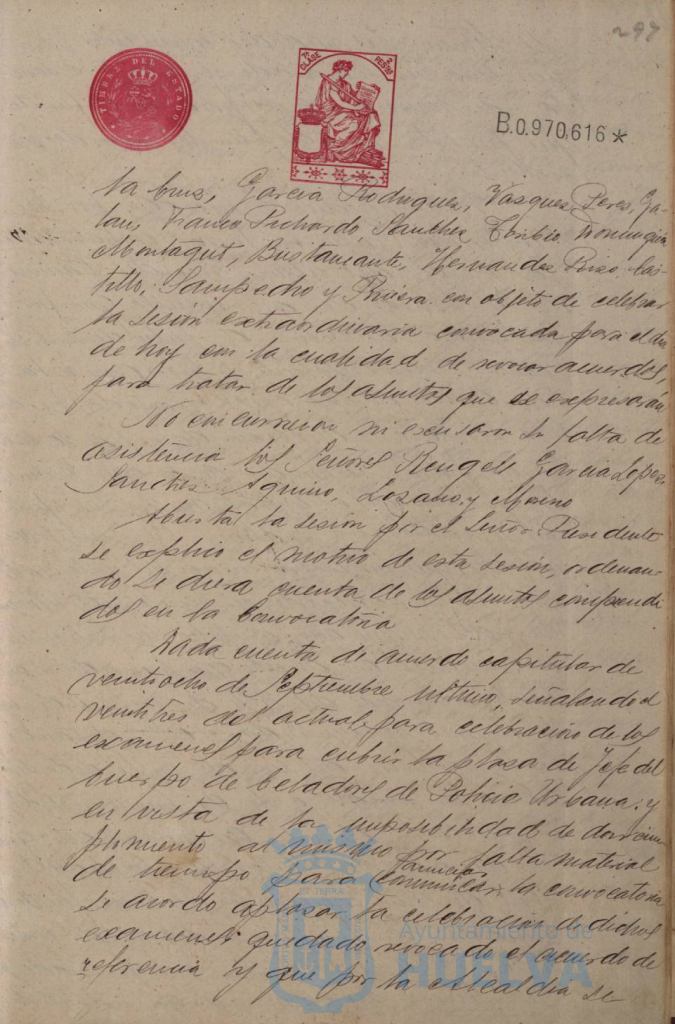 297
TIMBRE DEL ESTADO
7ª CLASE 2 PESETAS
B.0.970,616*
la Cruz, Garcia Rodriguez, Vazquez Perez, Ga-
lan, Franco Pichardo, Sanchez Toribio, Dominguez
Montagut, Bustamante, Hernandez Pizo, Cas-
tillo, Sampedro y Rivera con objeto de celebrar
la sesión extraordinaria convocada para el dia
de hoy con la cualidad de revocar acuerdos,
para tratar de los asuntos que se expresarán
No concurrieron ni excusaron su falta de
asistencia los Señores Rengel, Garcia Lopez,
Sanchez Aquino, Lozano, y Moreno
Abierta la sesión por el Señor Presidente
se explicó el motivo de esta sesión, ordenan-
do se diera cuenta de los asuntos comprendi
dos en la convocatoria
Dada cuenta de acuerdo capitular de
veintiocho de Septiembre ultimo, señalando el
veintitres del actual para celebración de los
examenes para cubrir la plaza de Jefe del
Cuerpo de Celadores de Policia Urbana; y
en vista de la imposibilidad de dar cum-
plimiento al mismo por falta material
de tiempo para anunciar la convocatoria
se acordó aplazar la celebración de dichos
examenes quedado revocado el acuerdo de
referencia y que por la Alcaldia se
Ayuntamiento de
HUELVA